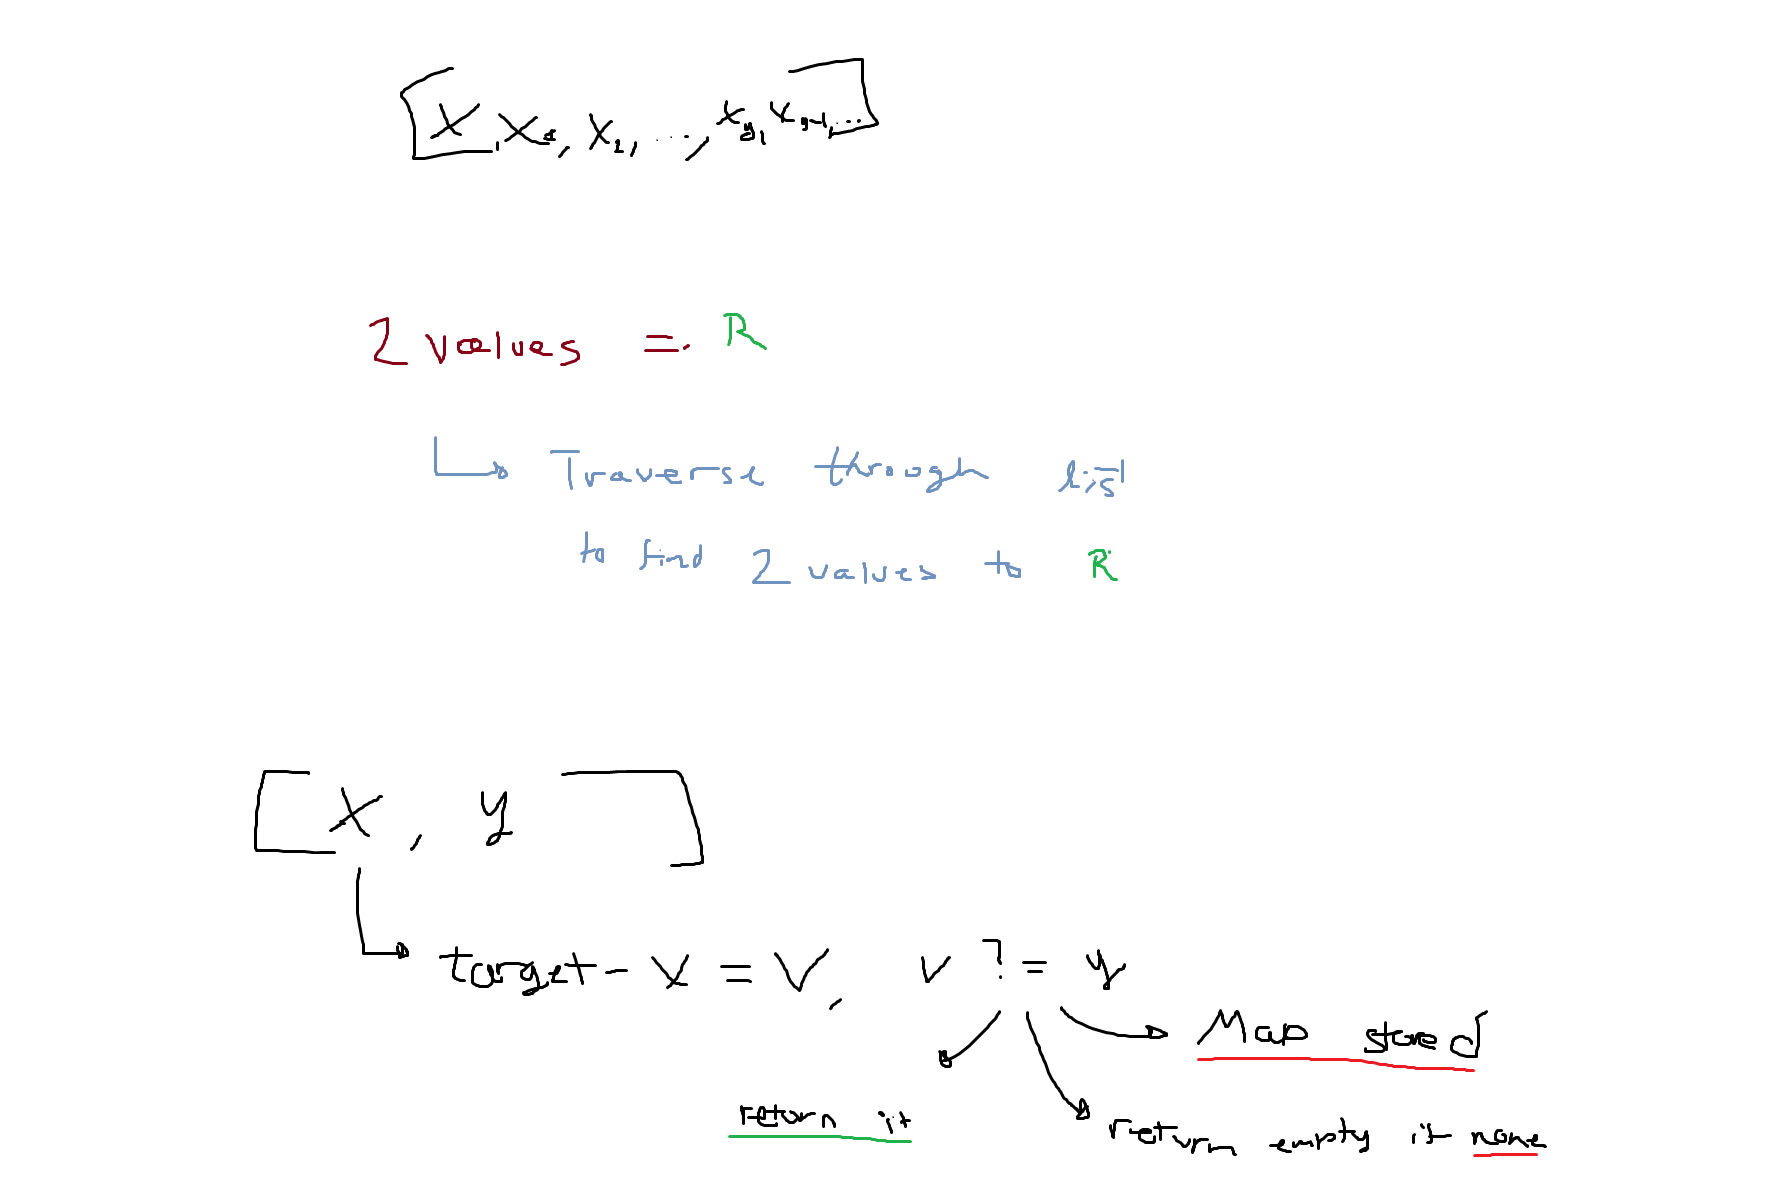 [X, X₁, X₂, ..., Xy, Xy+1, ...]
2 values = R
Traverse through list
to find 2 values to R
[X, y ]
target - X = V, V ?= y
Map stored
return it
return empty if none